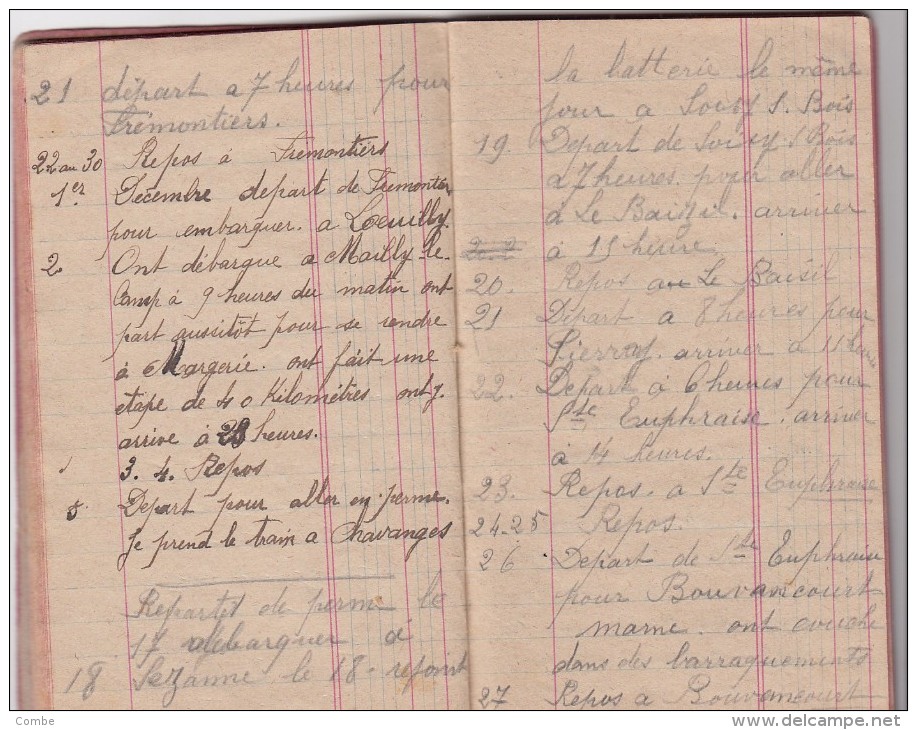 21 départ a 7 heures pour
Frémontiers.
22 au 30 Repos à Fremontiers
1er Decembre depart de Fremontier
pour embarquer. a Loeuilly.
2 Ont débarque a Mailly le
Camp à 9 heures du matin ont
part aussitôt pour se rendre
à Margerie. ont fait une
etape de 40 Kilométres ont y.
arrive à 23 heures.
3. 4. Repos
5. Depart pour aller en perme.
Je prend le train a Chavanges
Repartet de perme le
17 debarquer à
18 Sezanne le 18. rejoint
la batterie le même
jour a Soisy S. Bois
19. Depart de Soisy S Bois
a 7 heures. pour aller
à Le Baizil. arriver
à 15 heure.
20. Repos au Le Baisil
21 Départ a 8 heures pour
Pierry. arriver a 15 heure
22. Depart à 6 heures pour
Ste Euphraise. arriver
à 14 heures.
23. Repos. a Ste Euphraise
24.25 Repos.
26 Depart de Ste Euphraise
pour Bouvancourt
marne. ont couche
dans des barraquements
27 Repos a Bouvancourt
Combe